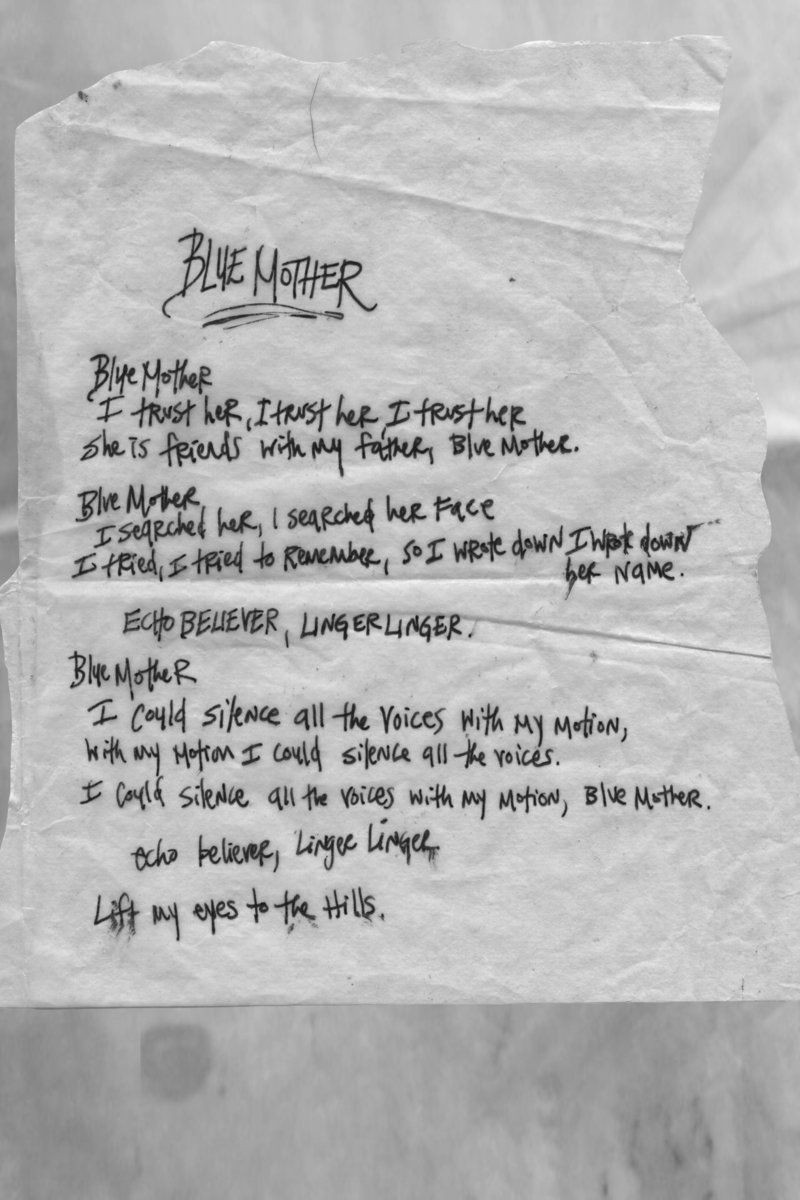 BLUE MOTHER
Blue Mother
I trust her, I trust her, I trust her
She is friends with my father, Blue Mother.
Blue Mother
I searched her, I searched her Face
I tried, I tried to Remember, so I wrote down I wrote down
her name.
ECHO BELIEVER, LINGER LINGER.
Blue Mother
I could silence all the voices with my motion,
with my motion I could silence all the voices.
I could silence all the voices with my motion, Blue Mother.
echo believer, Linger Linger
Lift my eyes to the Hills.